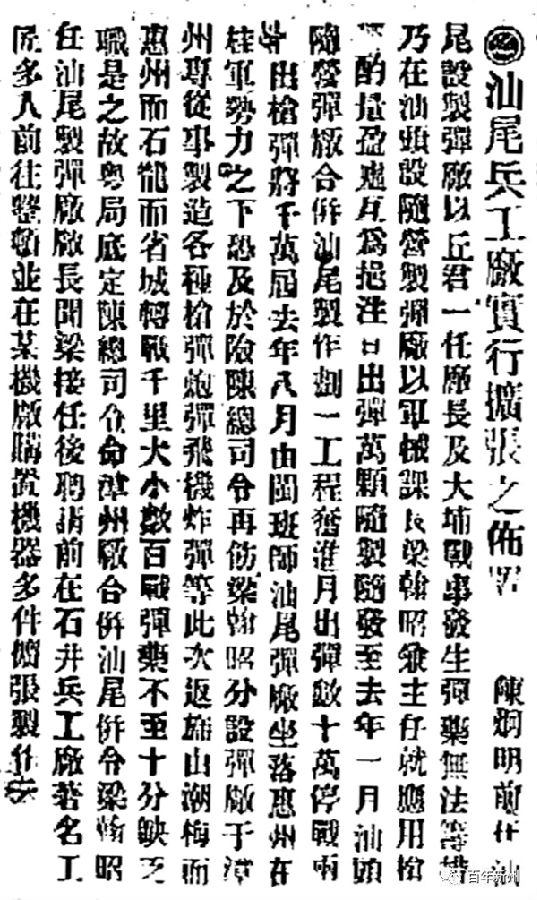 汕尾兵工廠實行擴張之佈置 陳炯明前在汕
尾設製彈廠以丘君一任廠長及大埔戰事發生彈藥無法籌措
乃在汕頭設隨營製彈廠以軍械課長梁翰昭兼主任就應用槍
酌量盈虛互爲挹注日出彈萬顆隨製隨發至去年一月汕頭
隨營彈廠合併汕尾製作劃一工程奮進月出彈數十萬停戰兩
出槍彈將千萬屆去年八月由閩班師汕尾彈廠坐落惠州在
桂軍勢力之下恐及於險陳總司令再飭梁翰昭分設彈廠于漳
州專從事製造各種槍彈炮彈飛機炸彈等此次返旆由潮梅而
惠州而石龍而省城轉戰千里大小數百戰彈藥不至十分缺乏
職是之故粵局底定陳總司令命漳州廠合併汕尾併令梁翰昭
任汕尾製彈廠廠長聞梁接任後聘請前在石井兵工廠著名工
匠多人前往整頓並在某機廠購置機器多件擴張製作云
百年新州